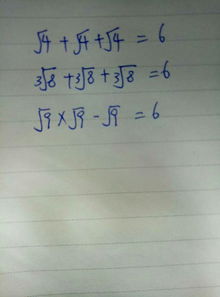 √4 + √4 + √4 = 6
3√8 + 3√8 + 3√8 = 6
√9 × √9 - √9 = 6